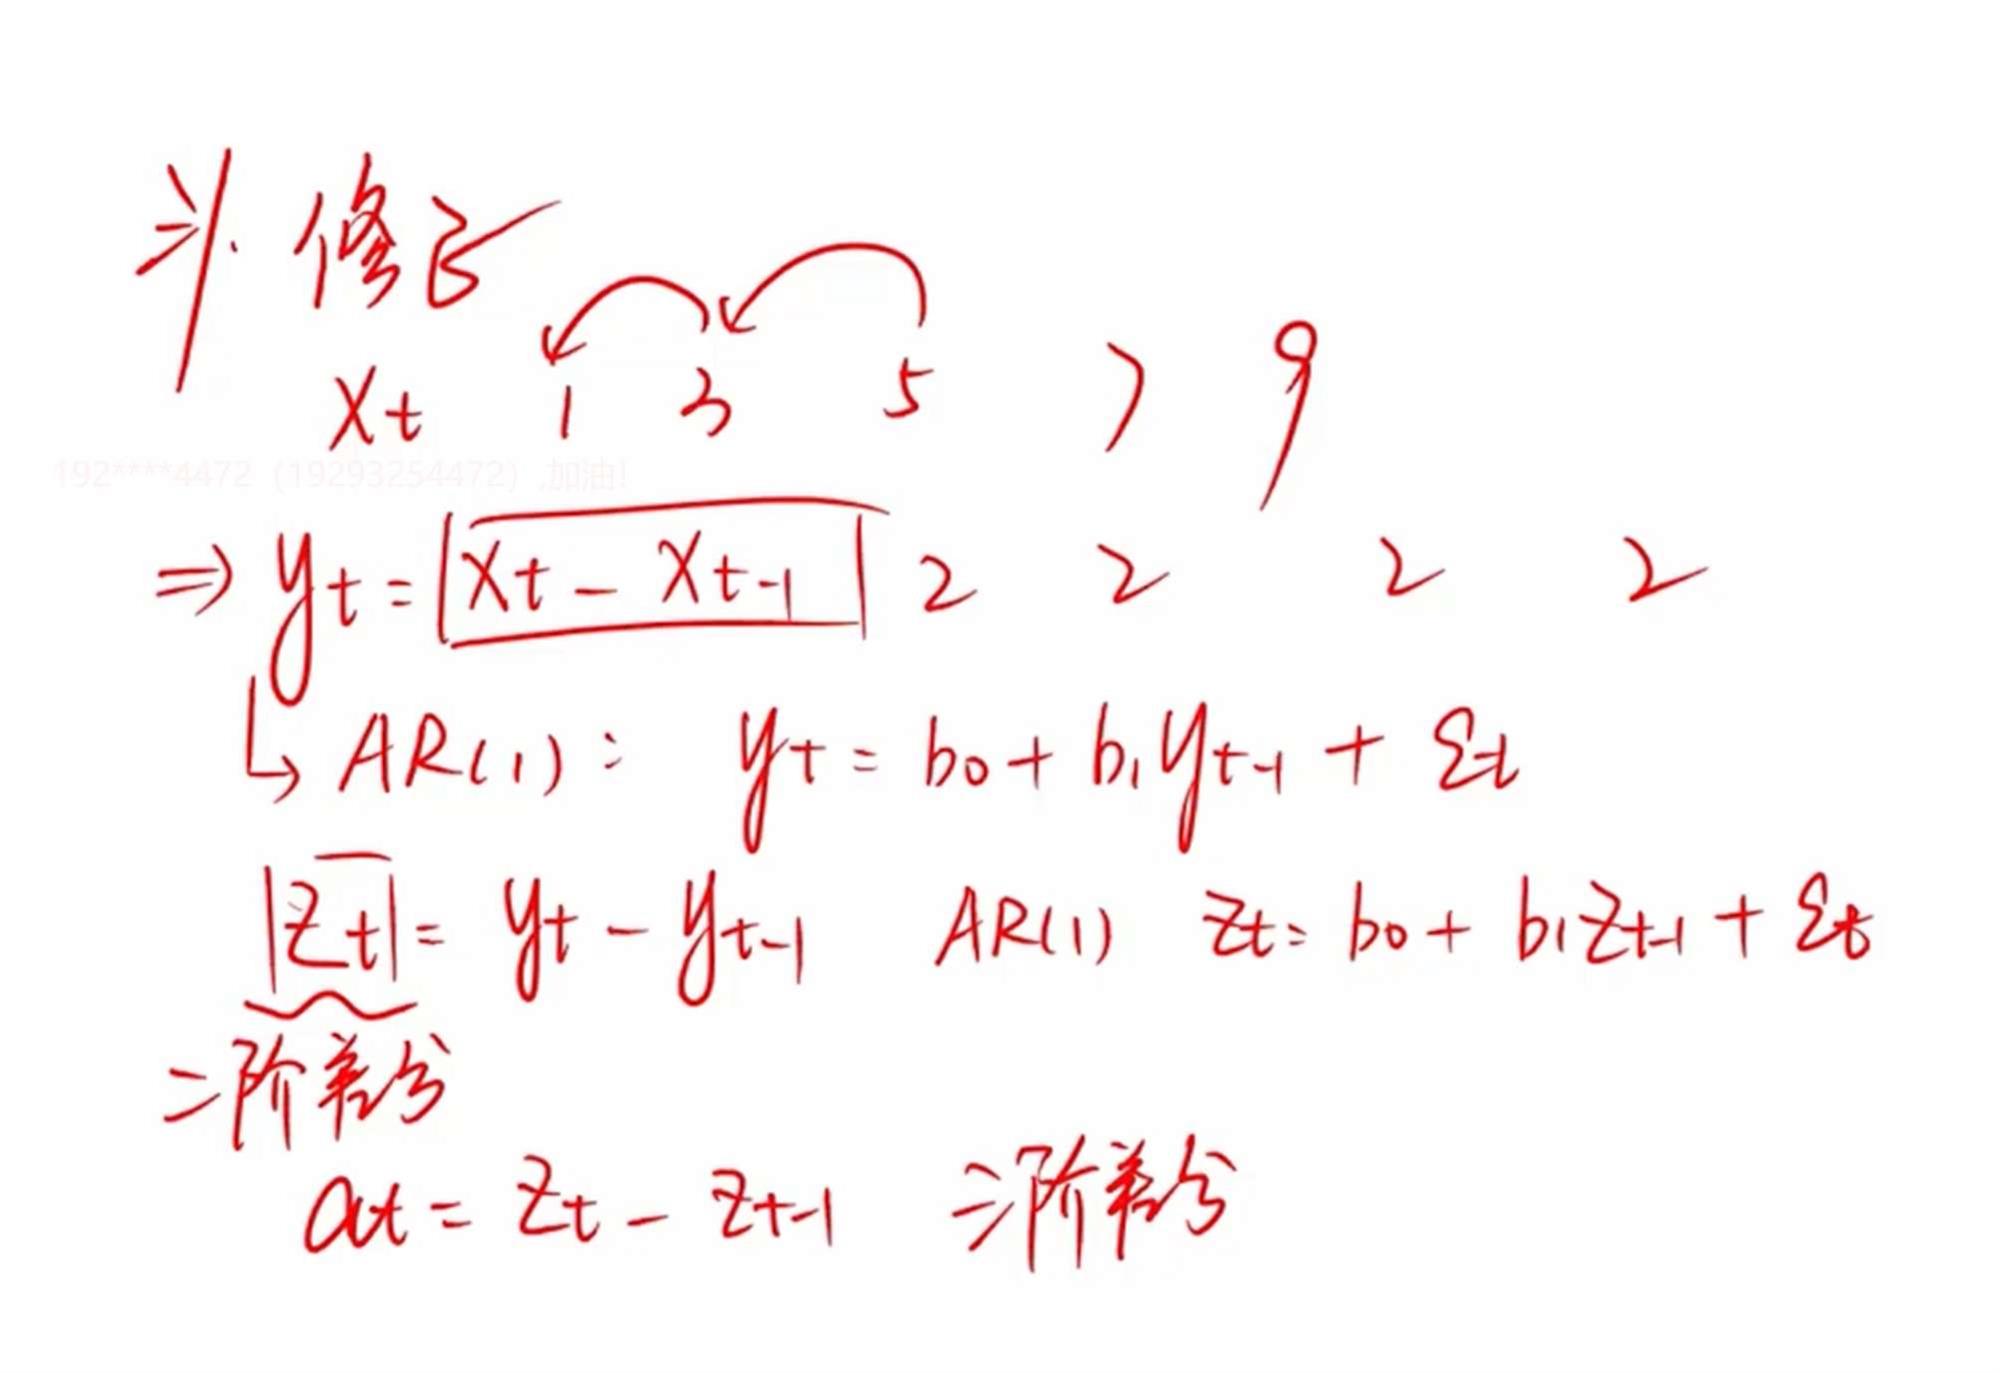 斗. 修正
Xt 1 3 5 7 9
192****4472 (19293254472) ,加油!
⇒ yt = Xt - Xt-1 2 2 2 2
↳ AR(1): yt = b0 + b1yt-1 + εt
Zt = yt - yt-1 AR(1) Zt = b0 + b1Zt-1 + εt
二阶差分
at = Zt - Zt-1 三阶差分